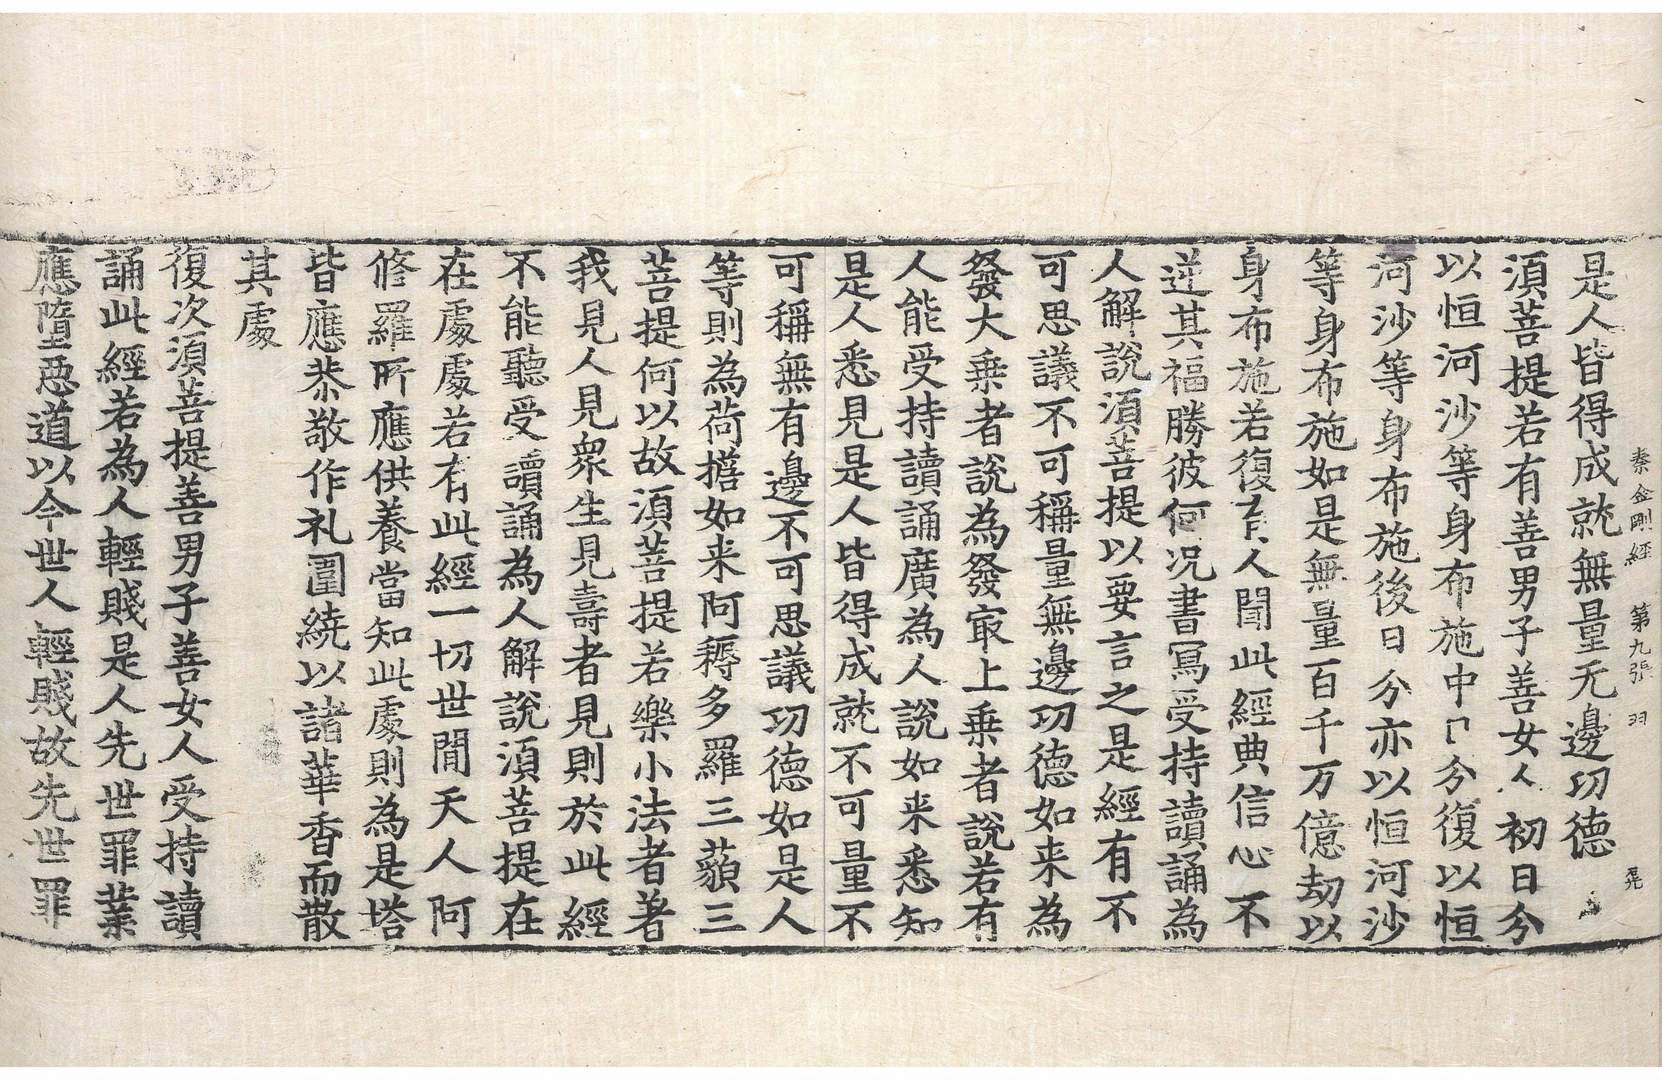 秦金剛經　第九張　羽　堯
是人皆得成就無量无邊功德
須菩提若有善男子善女人初日分
以恒河沙等身布施中日分復以恒
河沙等身布施後日分亦以恒河沙
等身布施如是無量百千万億劫以
身布施若復有人聞此經典信心不
逆其福勝彼何况書寫受持讀誦為
人解說須菩提以要言之是經有不
可思議不可稱量無邊功德如来為
發大乗者說為發㝡上乗者說若有
人能受持讀誦廣為人說如来悉知
是人悉見是人皆得成就不可量不
可稱無有邊不可思議功德如是人
等則為荷擔如来阿耨多羅三藐三
菩提何以故須菩提若樂小法者著
我見人見衆生見壽者見則於此經
不能聽受讀誦為人解說須菩提在
在處處若有此經一切世間天人阿
修羅所應供養當知此處則為是塔
皆應恭敬作礼圍繞以諸華香而散
其處
復次須菩提善男子善女人受持讀
誦此經若為人輕賤是人先世罪業
應墮惡道以今世人輕賤故先世罪